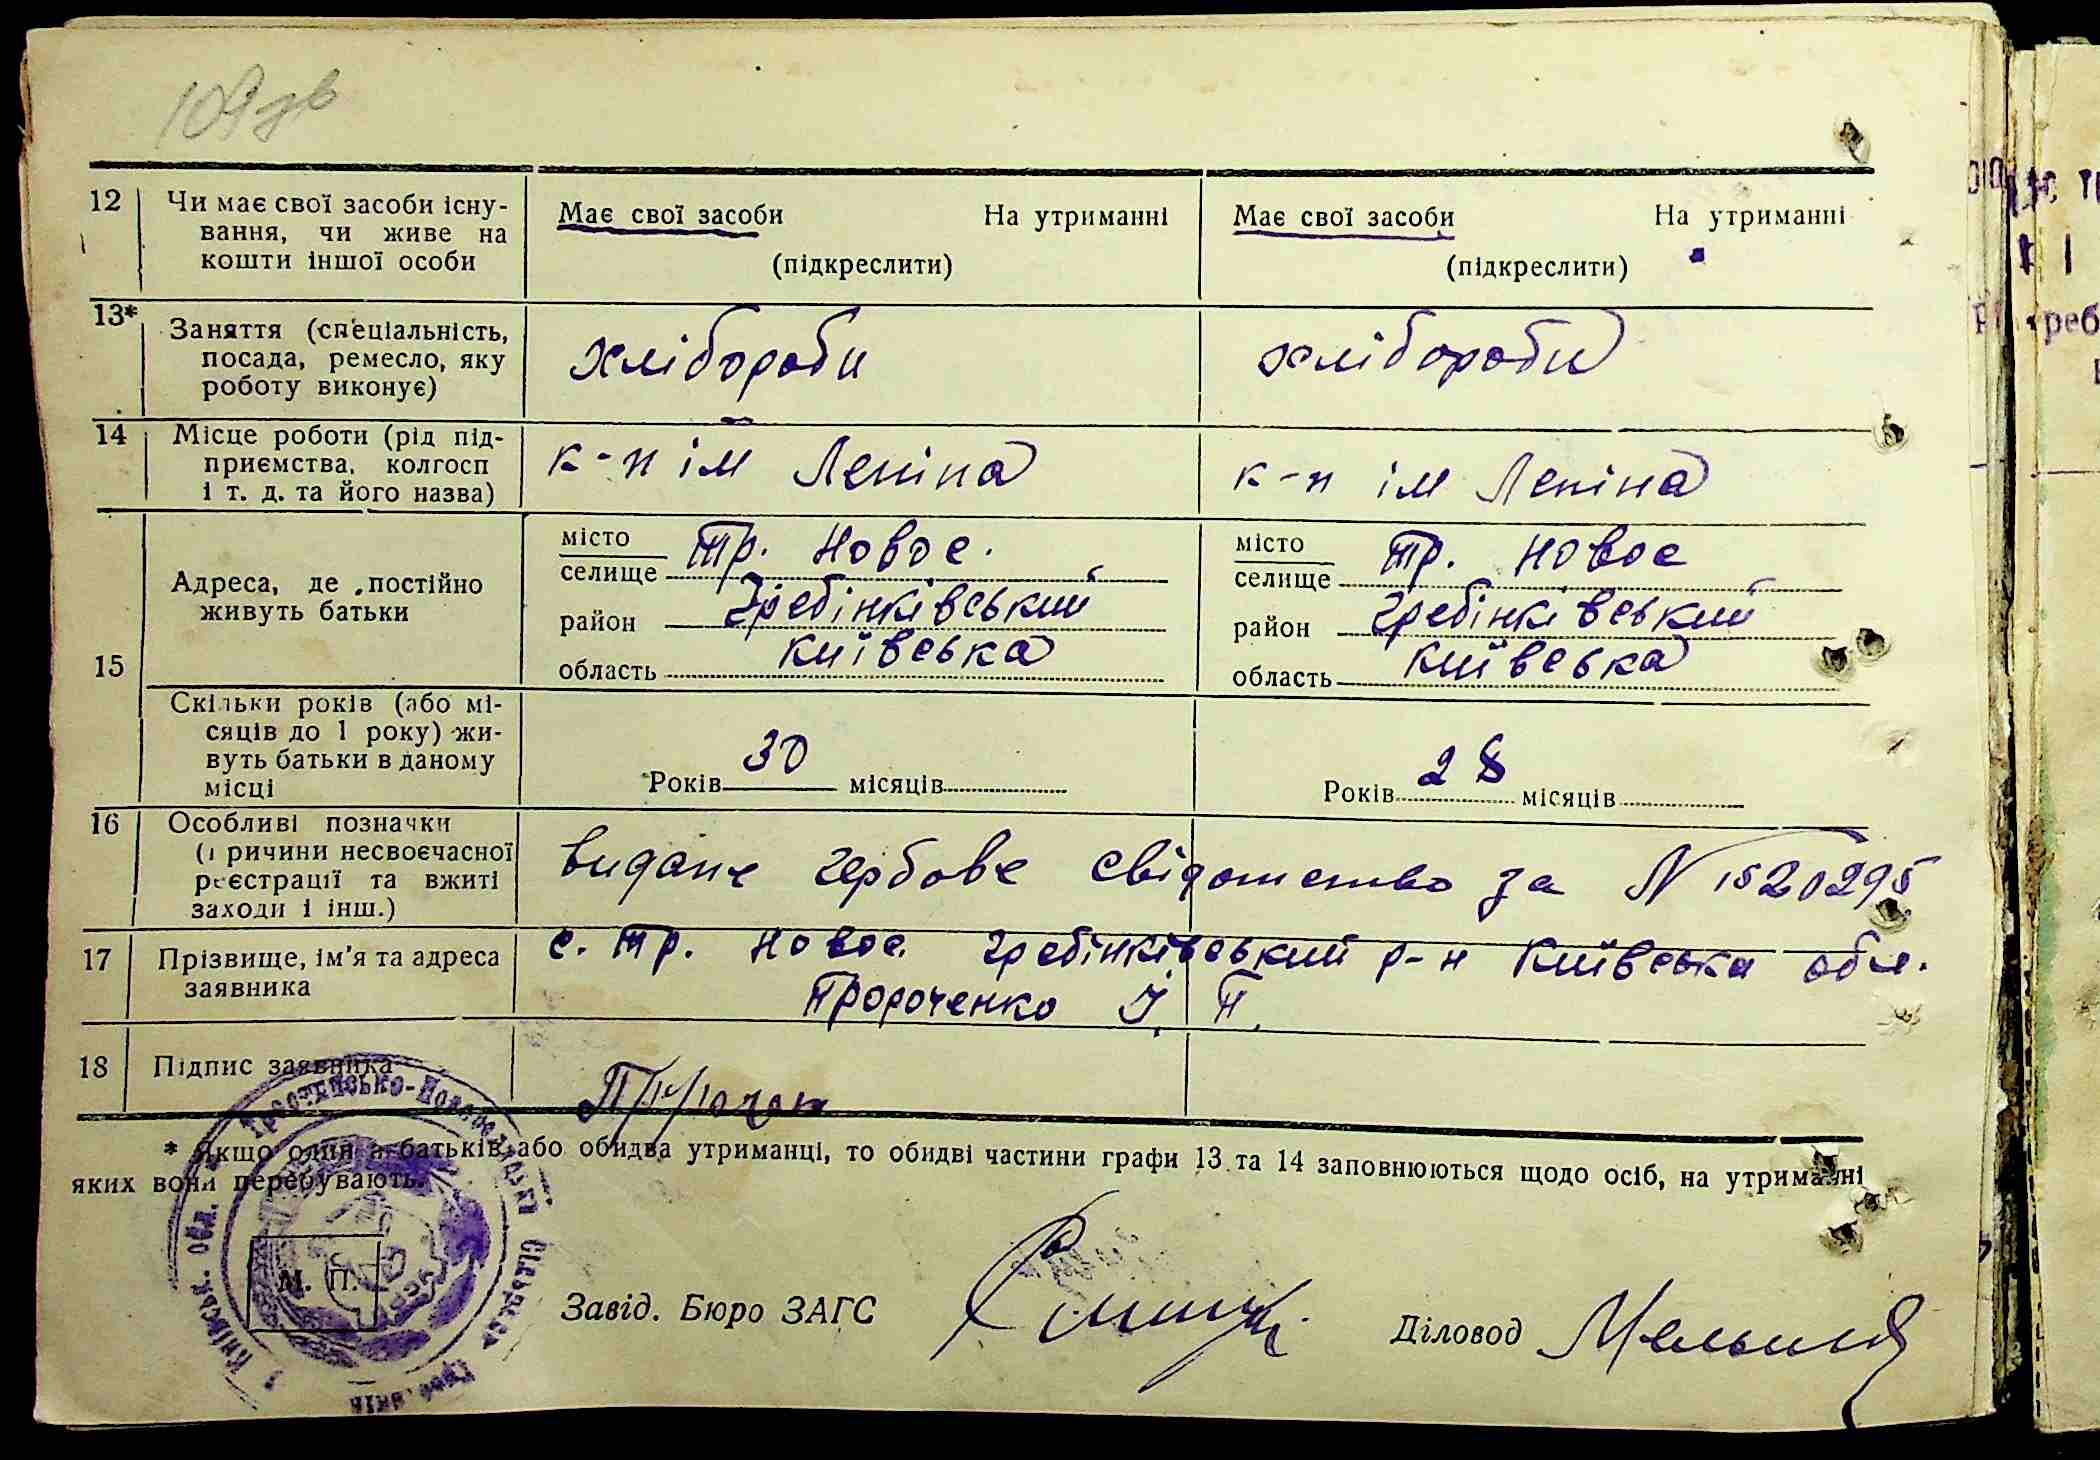 109 зв
12 Чи має свої засоби існу-
вання, чи живе на
кошти іншої особи
Має свої засоби На утриманні
(підкреслити)
Має свої засоби На утриманні
(підкреслити)
13* Заняття (спеціальність,
посада, ремесло, яку
роботу виконує)
хлібороби
хлібороби
14 Місце роботи (рід під-
приємства, колгосп
і т. д. та його назва)
к-п ім Леніна
к-п ім Леніна
15 Адреса, де постійно
живуть батьки
місто
селище тр. Новоє.
район Гребінківський
область Київська
місто
селище тр. Новоє
район Гребінківський
область Київська
Скільки років (або мі-
сяців до 1 року) жи-
вуть батьки в даному
місці
Років 30 місяців
Років 28 місяців
16 Особливі позначки
(причини несвоєчасної
реєстрації та вжиті
заходи і інш.)
видане гербове свідотство за N 1520295
17 Прізвище, ім'я та адреса
заявника
с. тр. Новоє. гребінківський р-н Київська обл.
Пророченко І. П.
18 Підпис заявника
* Якщо один з батьків або обидва утриманці, то обидві частини графи 13 та 14 заповнюються щодо осіб, на утриманні
яких вони перебувають.
М. П.
Київськ. обл.
Сільрада
Завід. Бюро ЗАГС
Діловод